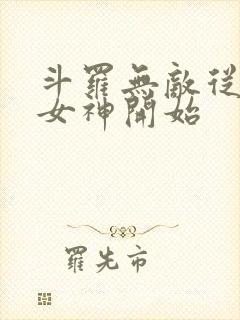 斗羅無敵從
女神開始
羅先市